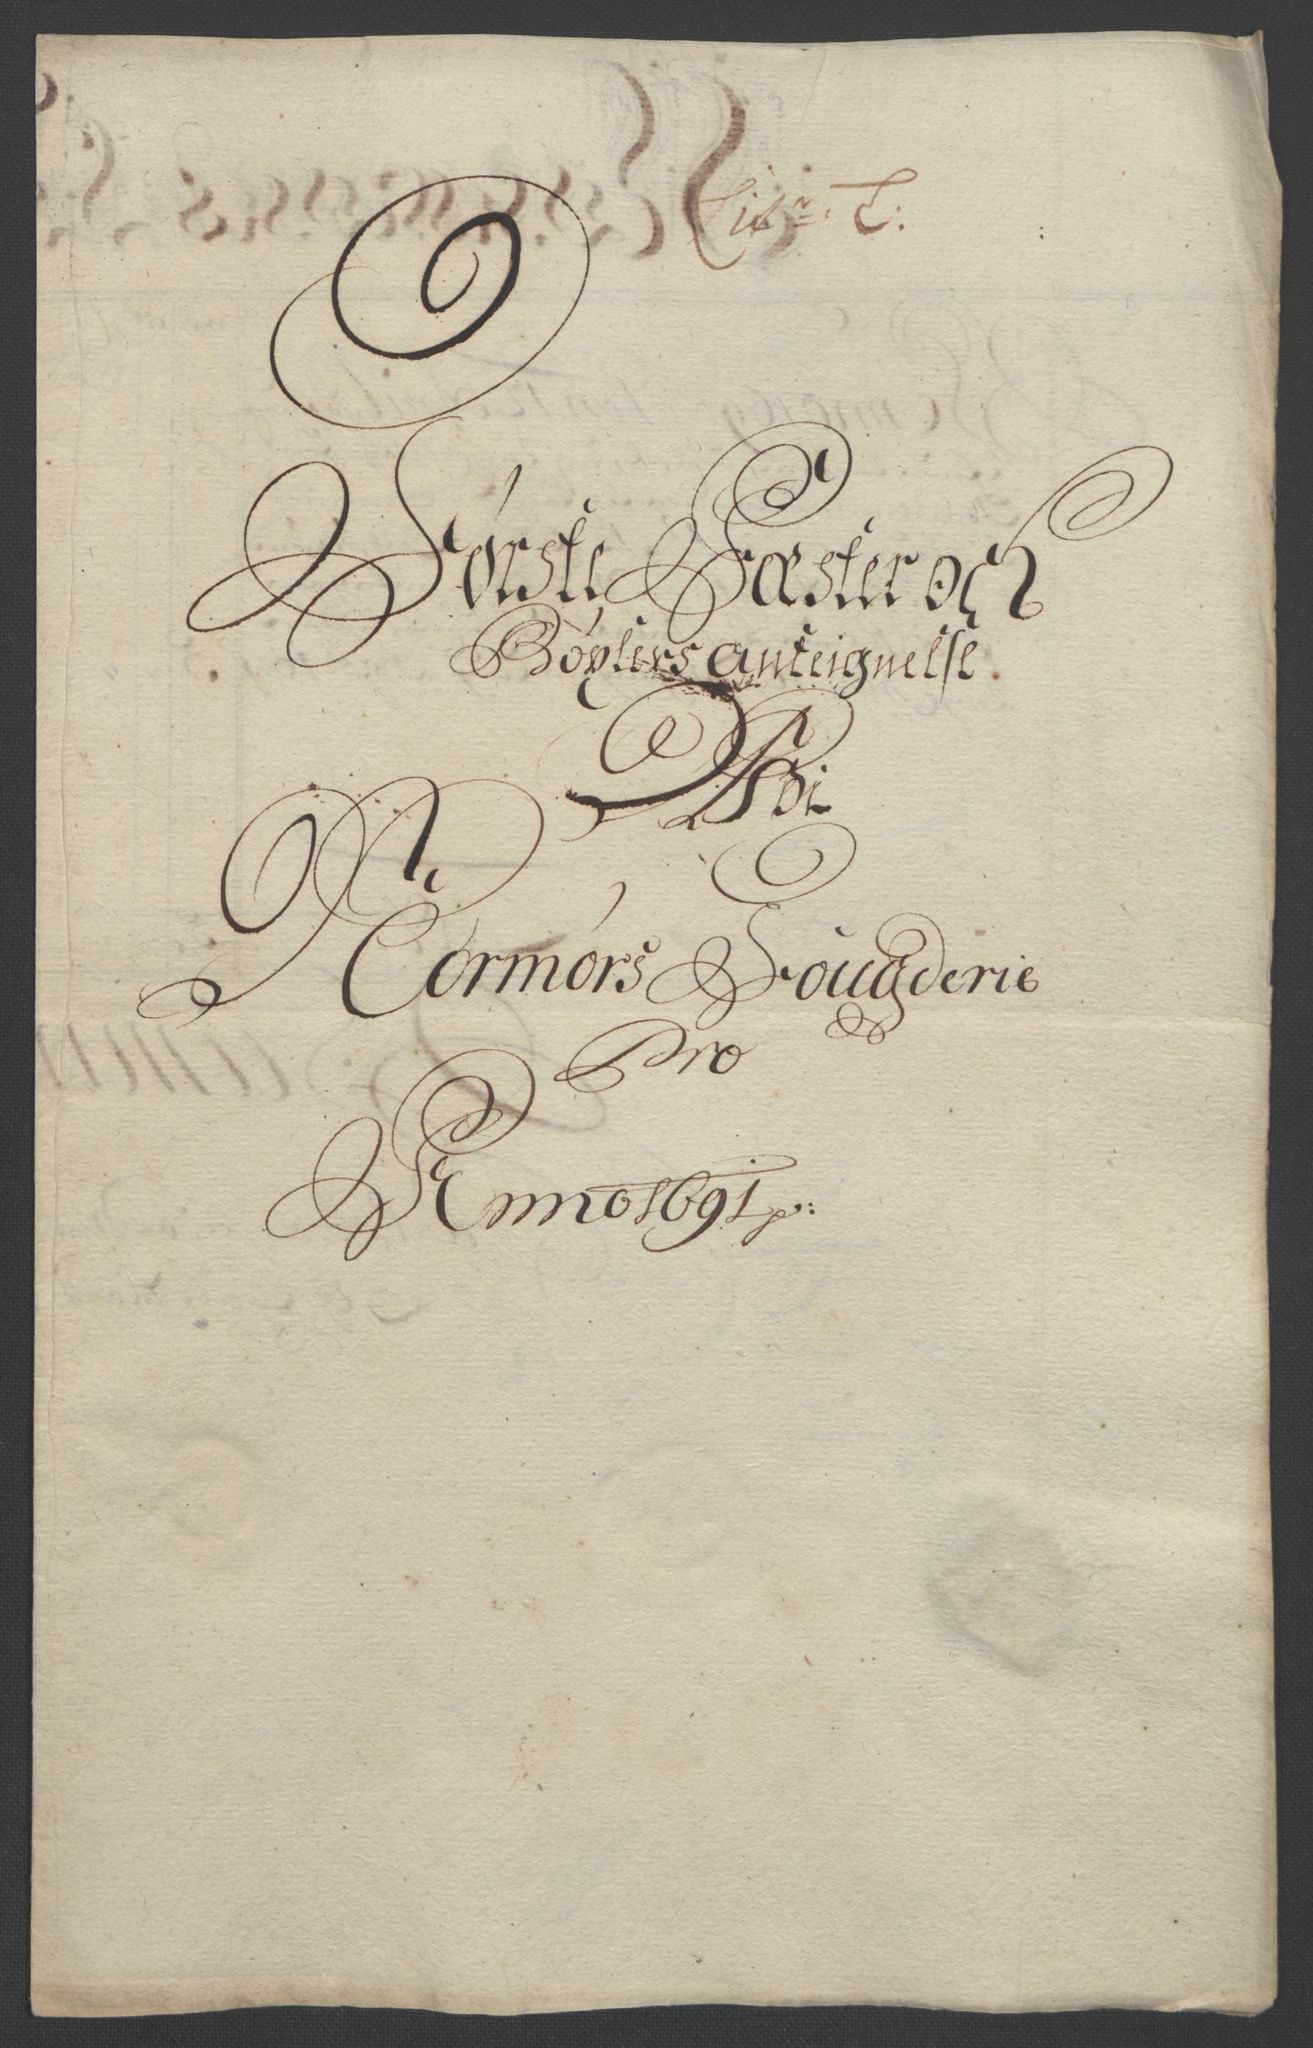 Litr: C:
Første Fæster och
Böxlers anteignelse
Afei
Normörs Fougderie
Pro
Anno 1691